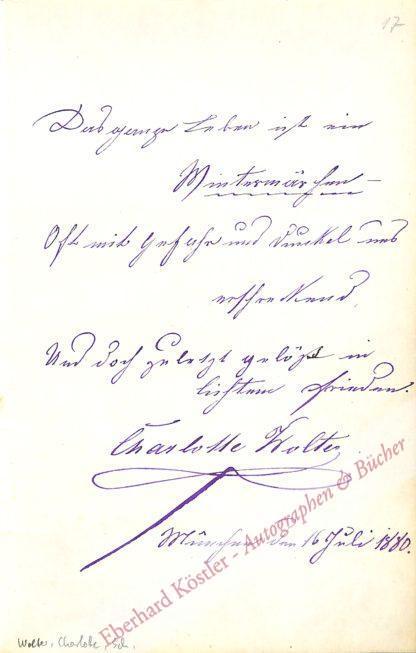 17
Das ganze Leben ist ein
Wintermärchen –
Oft mit Gefahr und Dunkel uns
erschreckend,
Und doch zuletzt gelößt in
lichtem Frieden.
Charlotte Wolter
München den 16 Juli 1880.
Eberhard Köstler - Autographen & Bücher
Wolter, Charlotte, Sch.